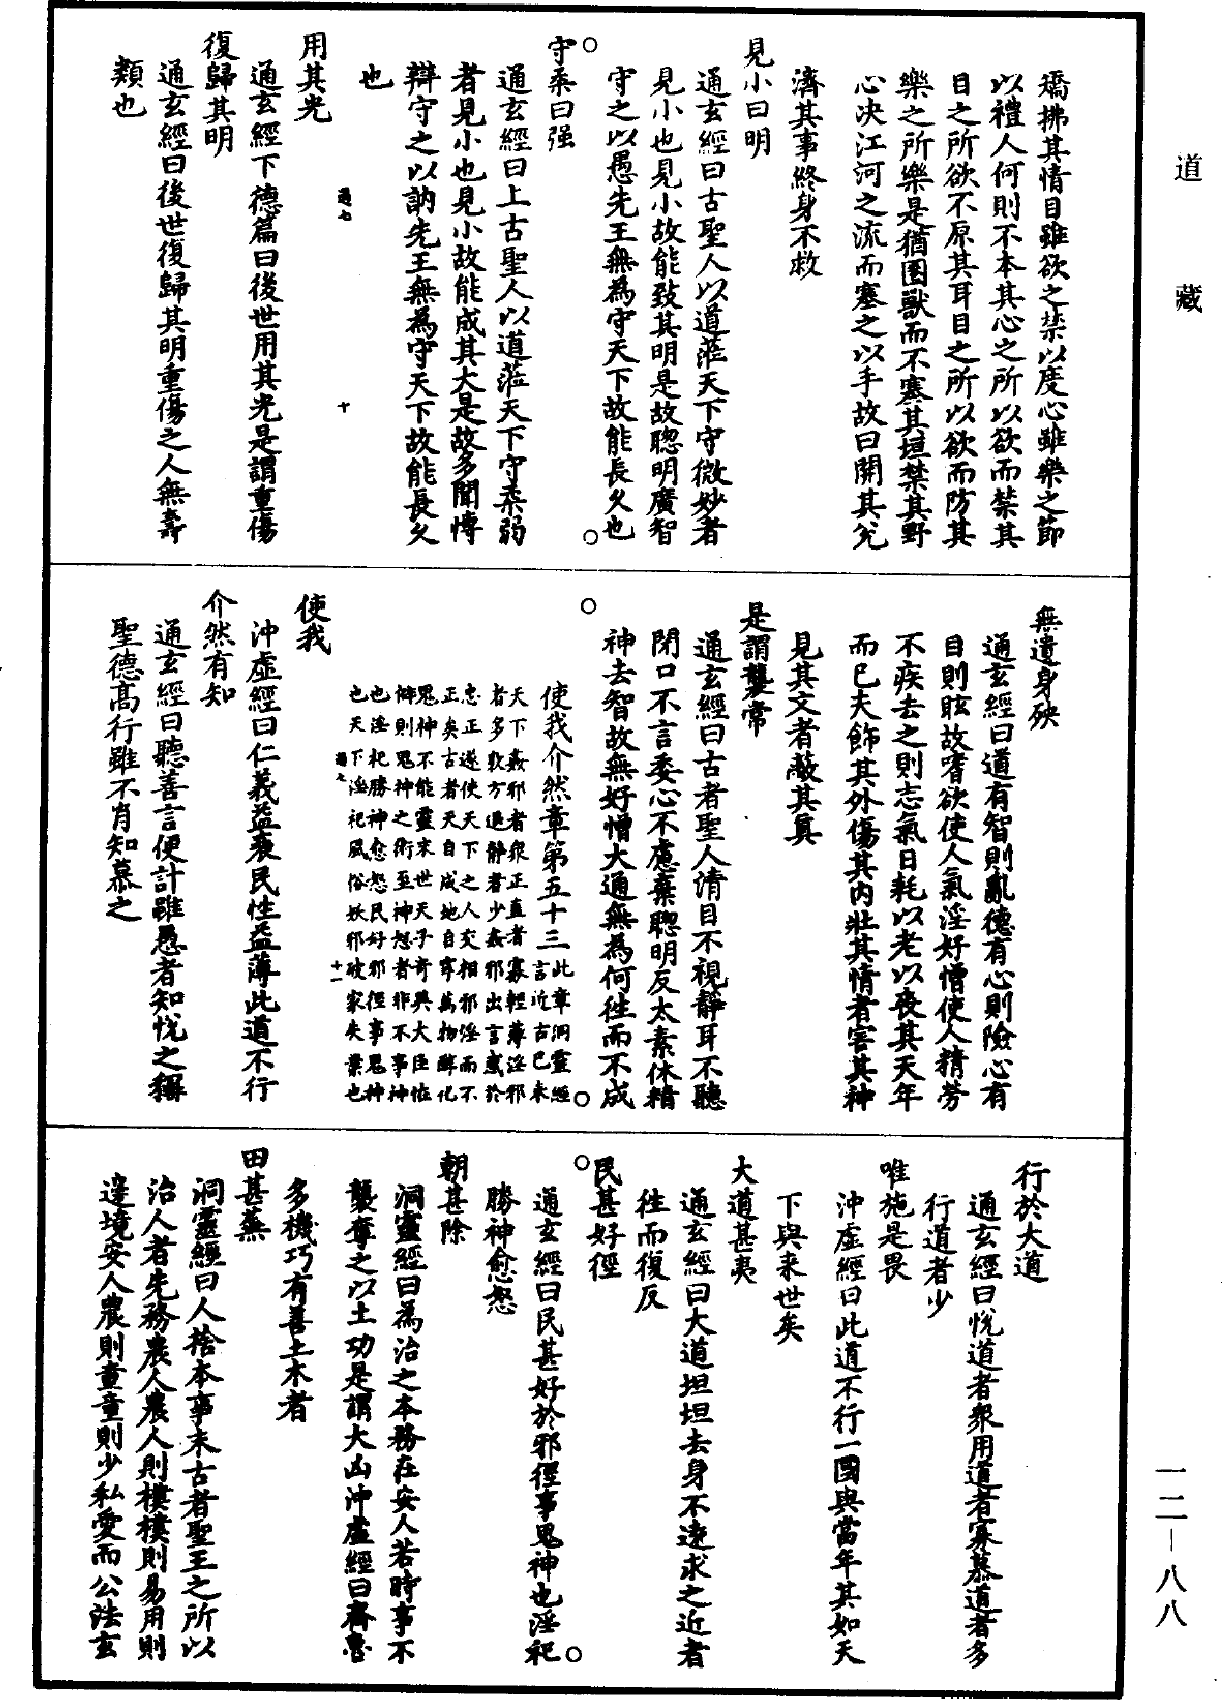 道藏
矯拂其情目雖欲之禁以度心雖樂之節
以禮人何則不本其心之所以欲而禁其
目之所欲不原其耳目之所以欲而防其
樂之所樂是猶圈獸而不塞其垣禁其野
心决江河之流而塞之以手故曰開其兊
濟其事終身不救
見小曰明
通玄經曰古聖人以道蒞天下守微妙者
見小也見小故能致其明是故聰明廣智
守之以愚先王無為守天下故能長久也
守柔曰强
通玄經曰上古聖人以道蒞天下守柔弱
者見小也見小故能成其大是故多聞愽
辯守之以訥先王無為守天下故能長久
也
用其光
通玄經下德篇曰後世用其光是謂重傷
復歸其明
通玄經曰後世復歸其明重傷之人無壽
類也
無遺身殃
通玄經曰道有智則亂德有心則險心有
目則眩故嗜欲使人氣淫好憎使人精勞
不疾去之則志氣日耗以老以喪其天年
而已夫飾其外傷其内壯其情者害其神
見其文者蔽其真
是謂襲常
通玄經曰古者聖人清目不視靜耳不聽
閉口不言委心不慮棄聰明反太素休精
神去智故無好憎大通無為何徃而不成
使我介然章第五十三此章洞靈經
言近古已來
天下姦邪者衆正直者寡輕薄淫邪
者多敦方退靜者少姦邪出言惑於
忠正遂使天下之人交相邪淫而不
正矣古者天自成地自寧萬物醉化
鬼神不能靈末世天子奇與大臣恠
僻則鬼神之術至神怒者非不事神
也淫祀勝神愈怒民好邪徑事鬼神
也天下淫祀風俗妖邪破家失業也
使我
沖虛經曰仁義益衰民性益薄此道不行
介然有知
通玄經曰聽善言便計雖愚者知悅之稱
聖德高行雖不肖知慕之
行於大道
通玄經曰悅道者衆用道者寡慕道者多
行道者少
唯施是畏
沖虛經曰此道不行一國與當年其如天
下與来世矣
大道甚夷
通玄經曰大道坦坦去身不遠求之近者
徃而復反
民甚好徑
通玄經曰民甚好於邪徑事鬼神也淫祀
勝神愈怒
朝甚除
洞靈經曰為治之本務在安人若時事不
襲奪之以土功是謂大凶沖虛經曰齊魯
多機巧有善土木者
田甚蕪
洞靈經曰人捨本事末古者聖王之所以
治人者先務農人農人則樸樸則易用則
邊境安人農則童童則少私愛而公法玄
一二—八八